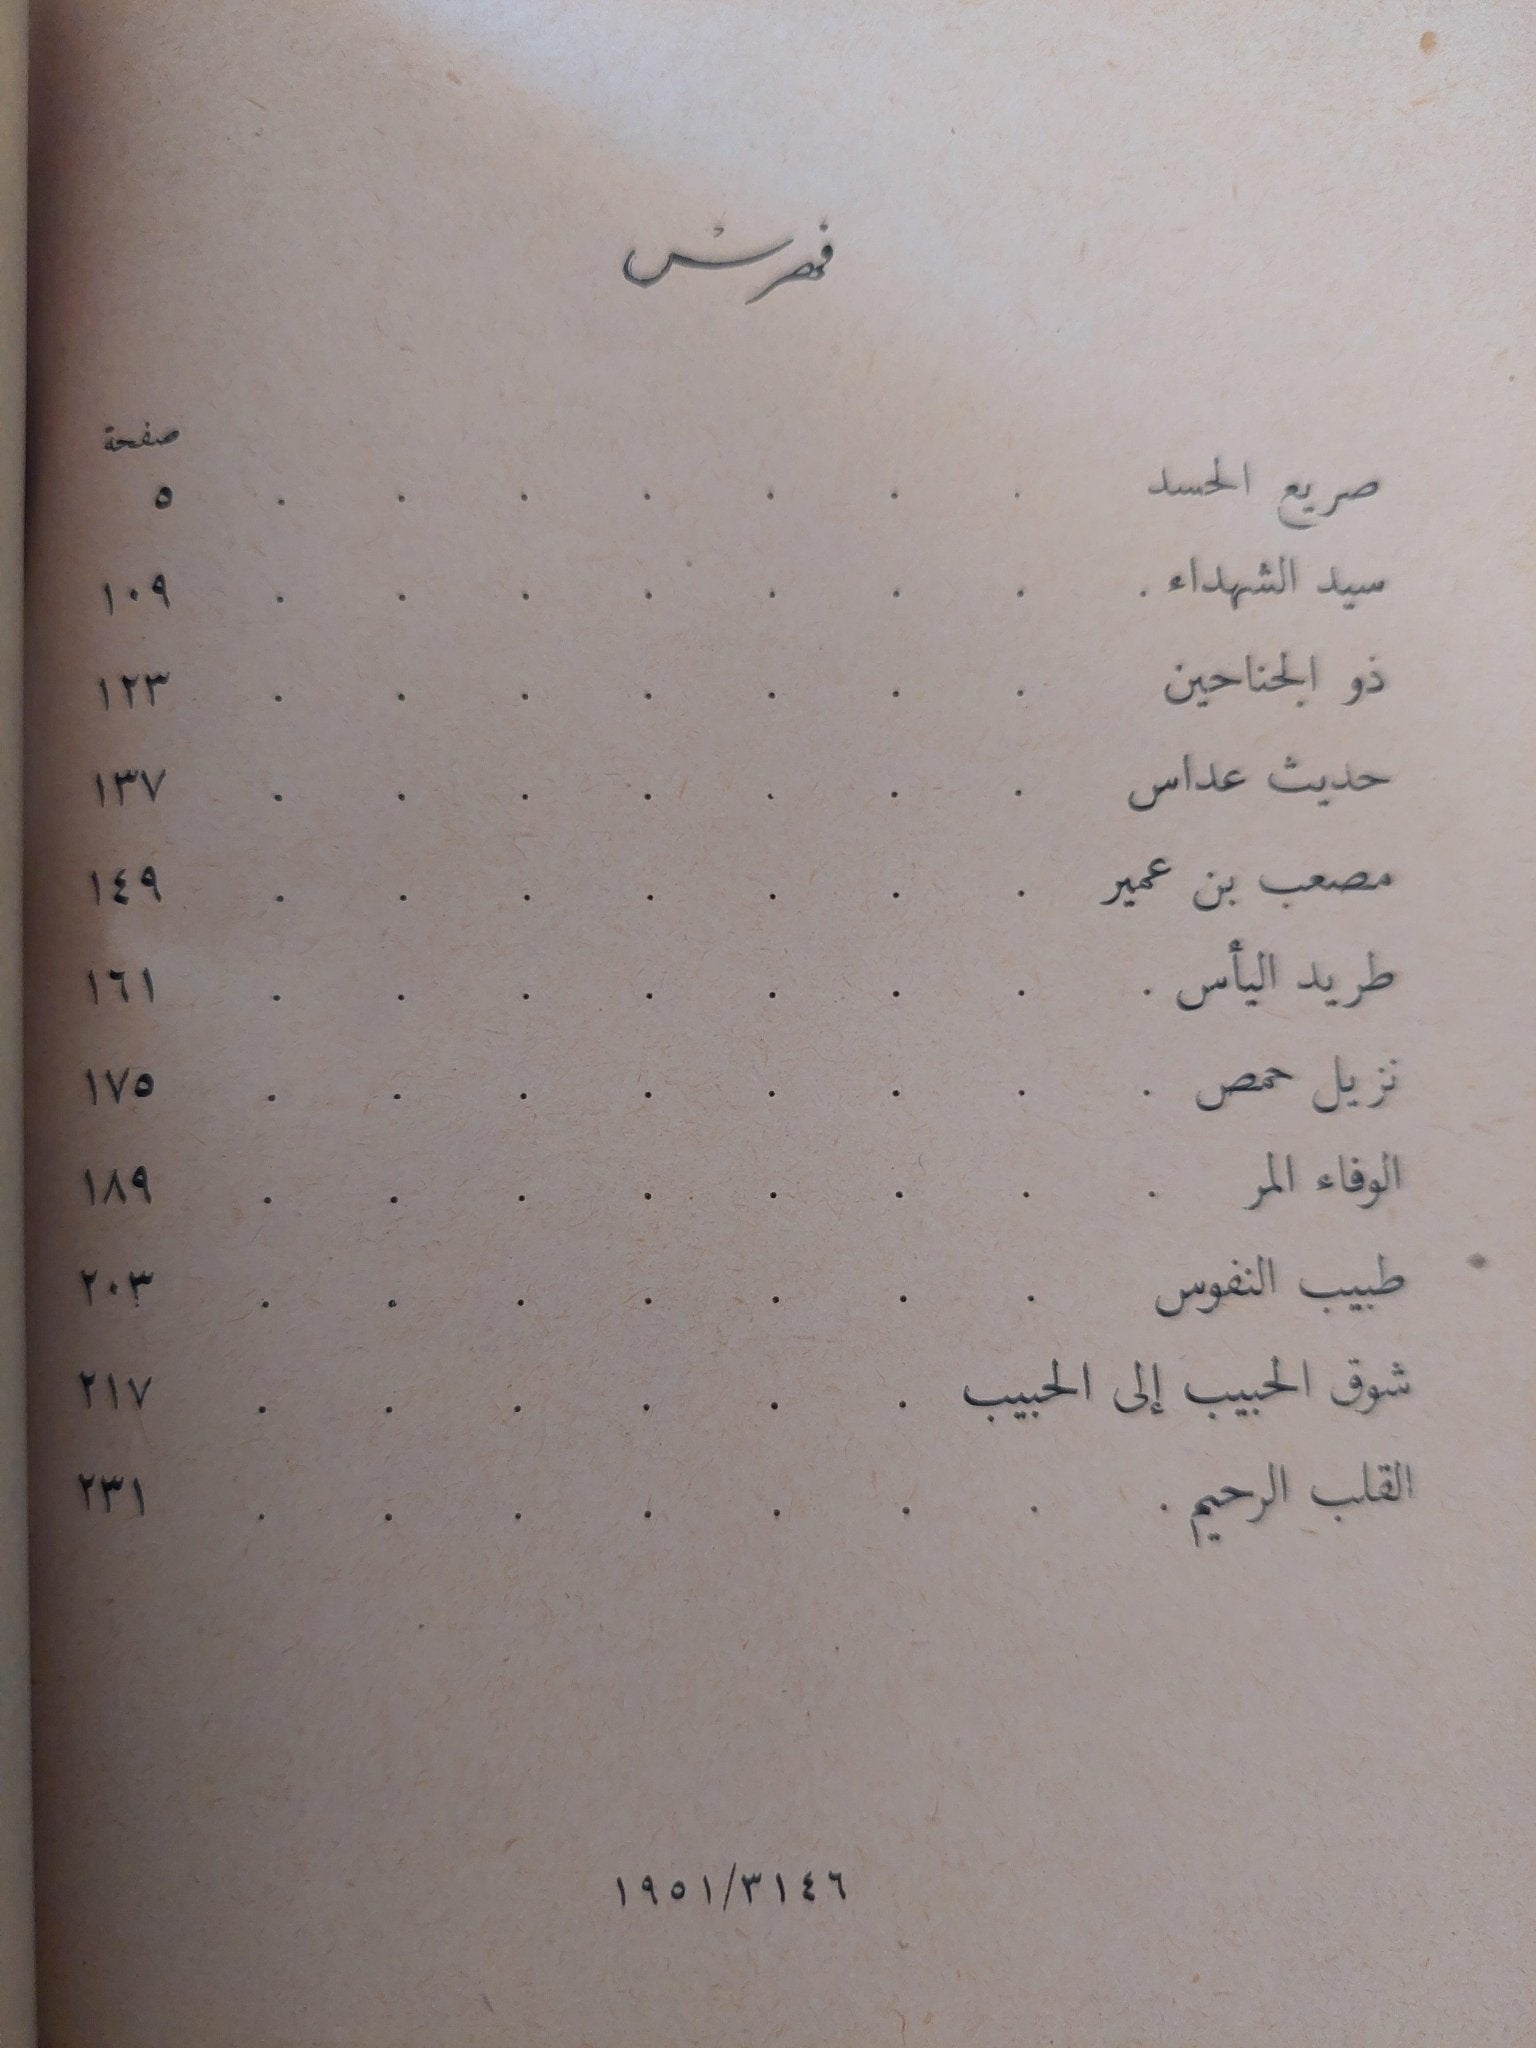 فهرس
صفحة
صريع الحسد . . . . . . . ٥
سيد الشهداء . . . . . . . . ١٠٩
ذو الجناحين . . . . . . . ١٢٣
حديث عداس . . . . . . . ١٣٧
مصعب بن عمير . . . . . . . ١٤٩
طريد اليأس . . . . . . . . ١٦١
نزيل حمص . . . . . . . . ١٧٥
الوفاء المر . . . . . . . . ١٨٩
طبيب النفوس . . . . . . . ٢٠٣
شوق الحبيب إلى الحبيب . . . . . . ٢١٧
القلب الرحيم . . . . . . . . ٢٣١
١٩٥١/٣١٤٦